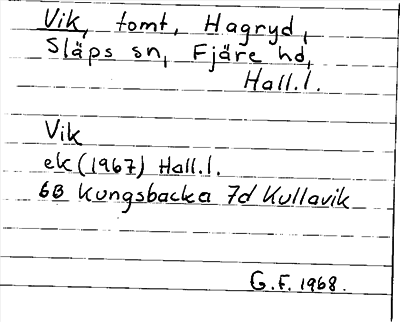 Vik, tomt, Hagryd,
Släps sn, Fjäre hd,
Hall.l.
Vik
ek (1967) Hall.l.
6B Kungsbacka 7d Kullavik
G.F. 1968.